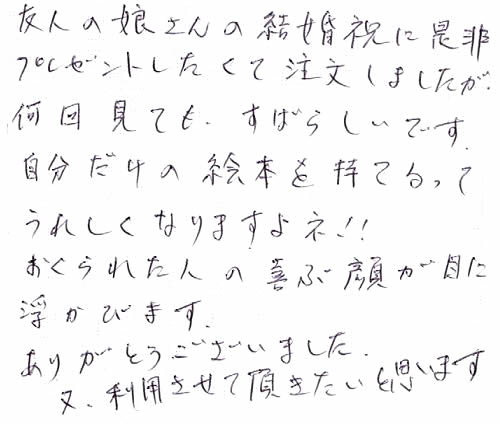 友人の娘さんの結婚祝に是非
プレゼントしたくて注文しましたが、
何回見ても、すばらしいです。
自分だけの絵本を持てるって
うれしくなりますよネ!!
おくられた人の喜ぶ顔が目に
浮かびます。
ありがとうございました。
又、利用させて頂きたいと思います